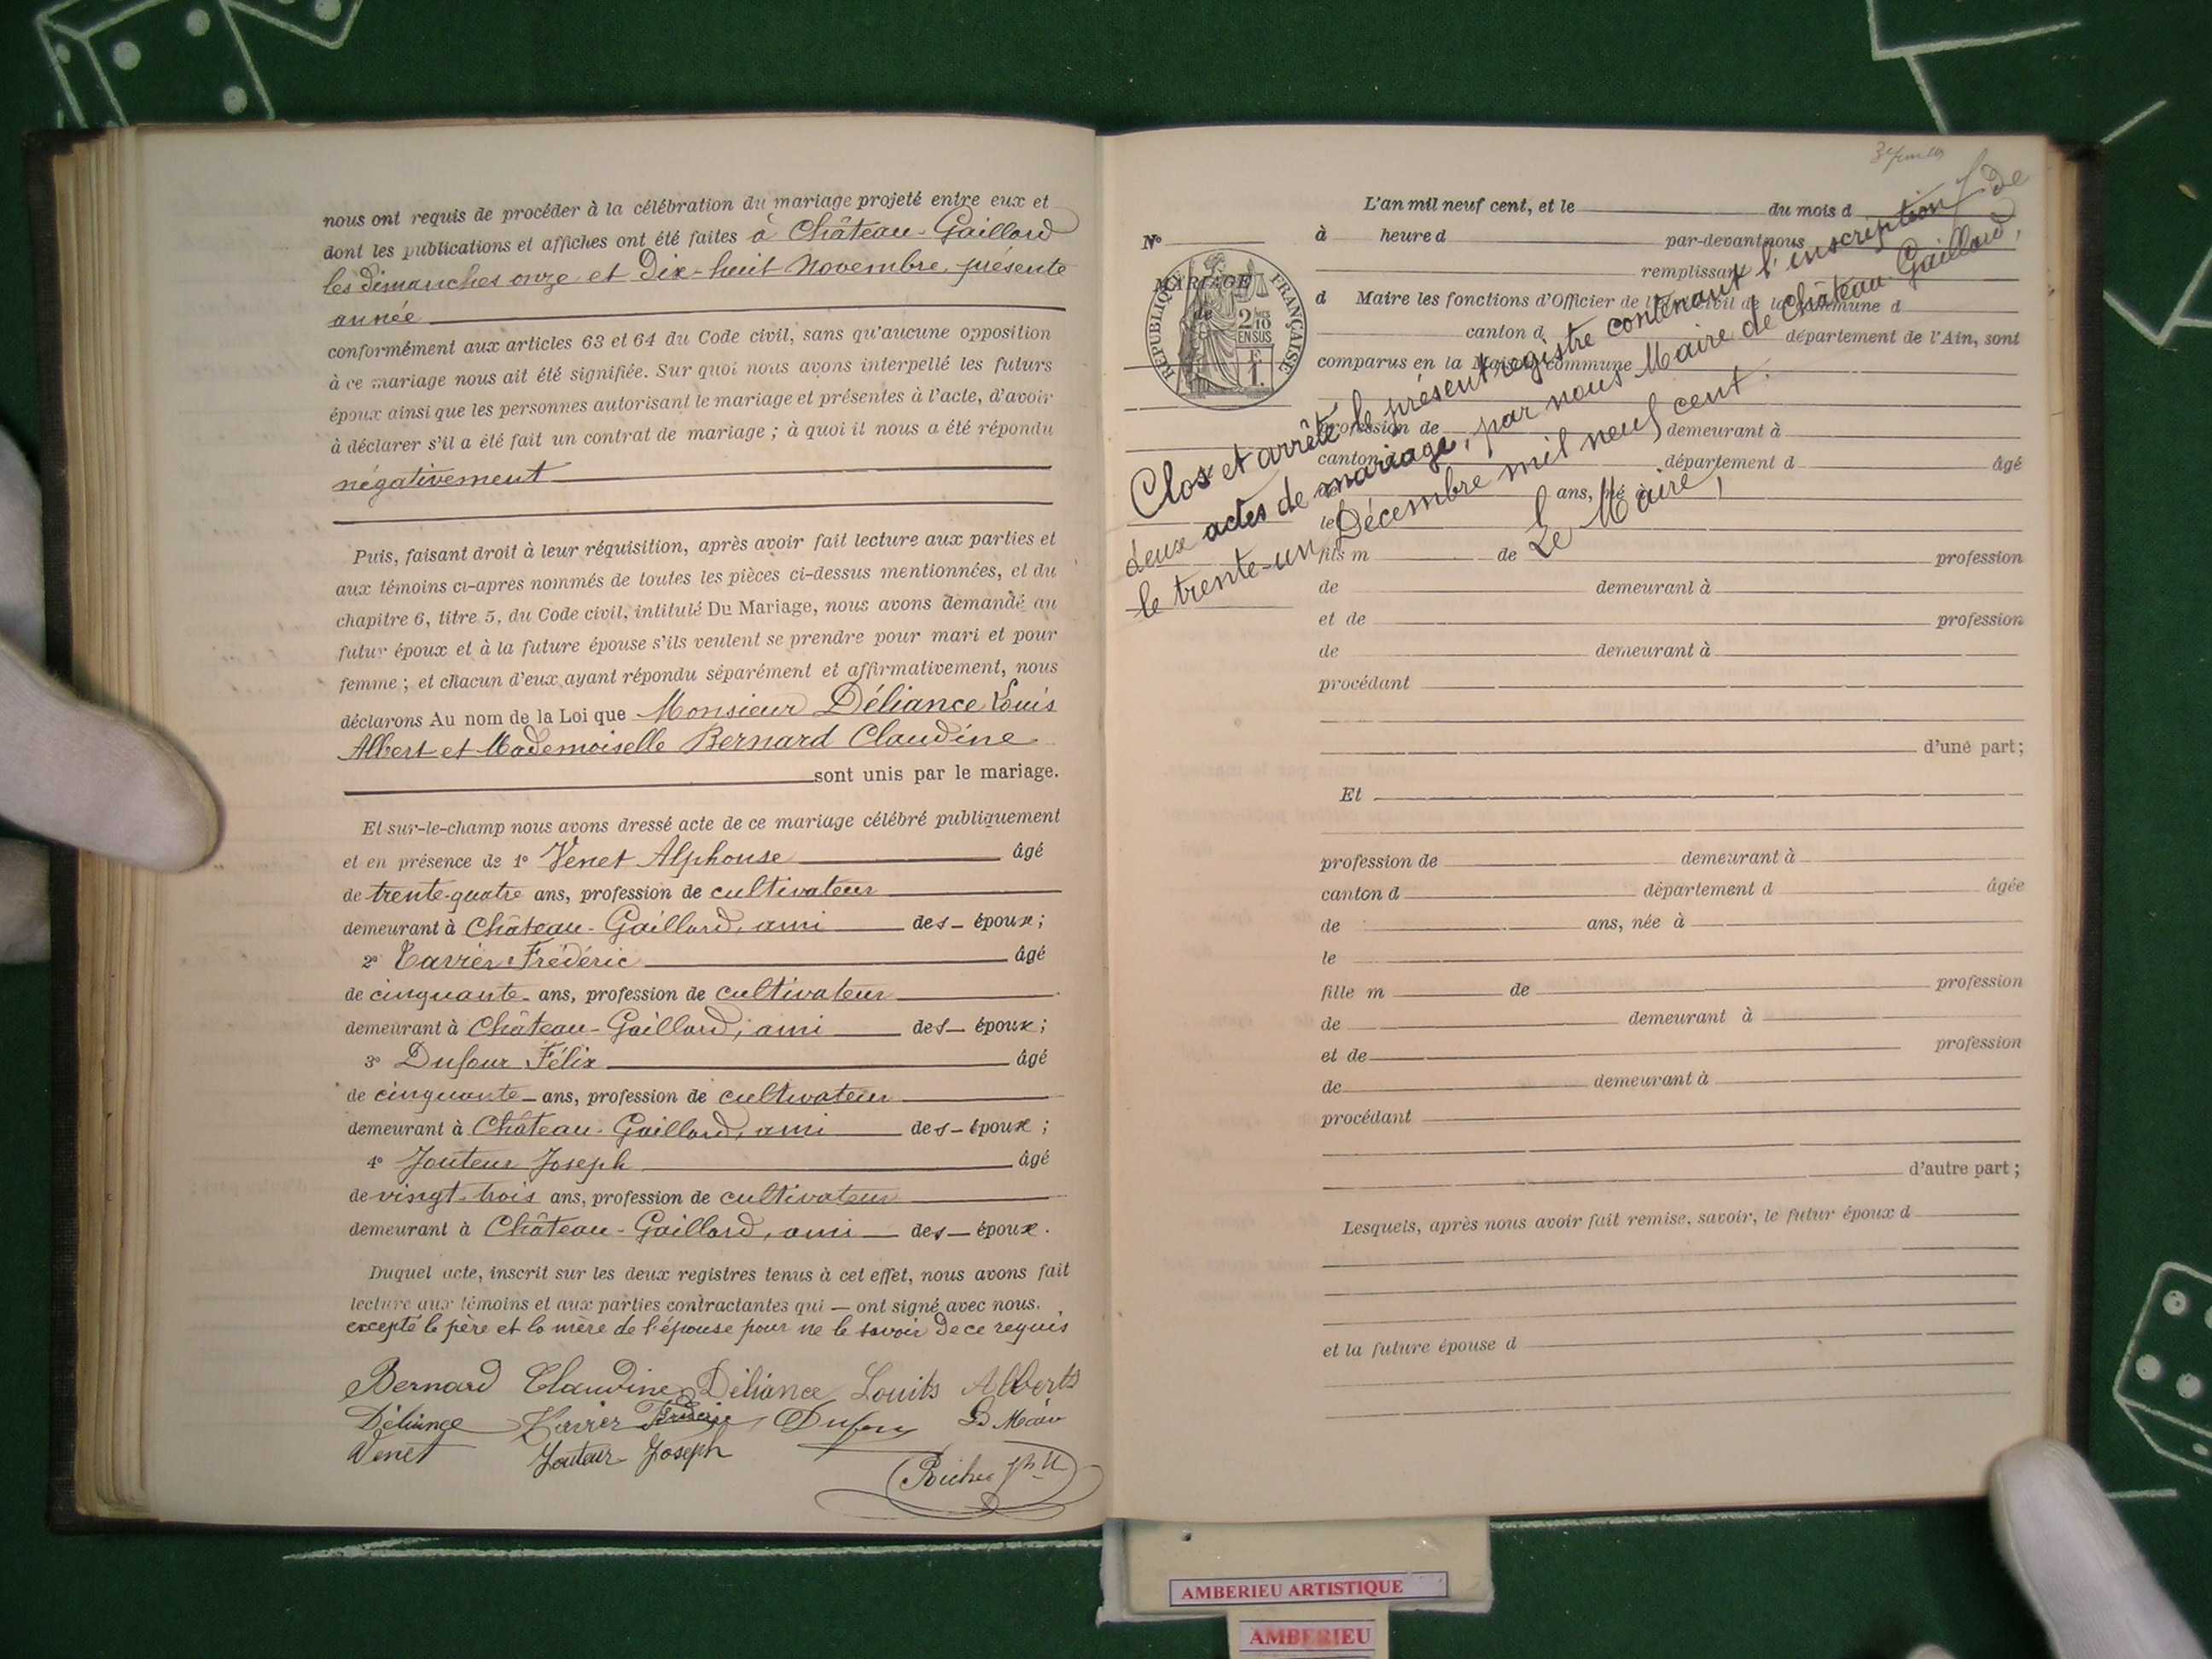 nous ont requis de procéder à la célébration du mariage projeté entre eux et
dont les publications et affiches ont été faites à Château-Gaillard
les dimanches onze et Dix-huit Novembre, présente
année
conformément aux articles 63 et 64 du Code civil, sans qu'aucune opposition
à ce mariage nous ait été signifiée. Sur quoi nous avons interpellé les futurs
époux ainsi que les personnes autorisant le mariage et présentes à l'acte, d'avoir
à déclarer s'il a été fait un contrat de mariage ; à quoi il nous a été répondu
négativement
Puis, faisant droit à leur réquisition, après avoir fait lecture aux parties et
aux témoins ci-après nommés de toutes les pièces ci-dessus mentionnées, et du
chapitre 6, titre 5, du Code civil, intitulé Du Mariage, nous avons demandé au
futur époux et à la future épouse s'ils veulent se prendre pour mari et pour
femme ; et chacun d'eux ayant répondu séparément et affirmativement, nous
déclarons Au nom de la Loi que Monsieur Déliance Louis
Albert et Mademoiselle Bernard Claudine
sont unis par le mariage.
Et sur-le-champ nous avons dressé acte de ce mariage célébré publiquement
et en présence de 1° Venet Alphonse âgé
de trente-quatre ans, profession de cultivateur
demeurant à Château-Gaillard, ami des époux ;
2° Tavier Frédéric âgé
de cinquante ans, profession de cultivateur
demeurant à Château-Gaillard, ami des époux ;
3° Dufour Félix âgé
de cinquante ans, profession de cultivateur
demeurant à Château-Gaillard, ami des époux ;
4° Jouteur Joseph âgé
de vingt-trois ans, profession de cultivateur
demeurant à Château-Gaillard, ami des époux.
Duquel acte, inscrit sur les deux registres tenus à cet effet, nous avons fait
lecture aux témoins et aux parties contractantes qui — ont signé avec nous.
excepté le père et la mère de l'épouse pour ne le savoir de ce requis
Bernard Claudine Déliance Louits Alberts
Déliance Tavier Frédéric Dufour Le Maire
Venet Jouteur Joseph
L'an mil neuf cent, et le du mois d
N° à heure d par-devant nous
MARIAGE remplissant
de
RÉPUBLIQUE FRANÇAISE
2/10 EN SUS
1 F
d Maire les fonctions d'Officier de l'état civil de la commune d
canton d département de l'Ain, sont
comparus en la Maison commune
profession de demeurant à
canton d département d âgé
de ans, né à
le
fils m de profession
de demeurant à
et de profession
de demeurant à
procédant
d'une part;
Clos et arrêté le présent registre contenant l'inscription de
deux actes de mariage, par nous Maire de Château-Gaillard,
le trente-un Décembre mil neuf cent.
Le Maire,
Et
profession de demeurant à
canton d département d âgée
de ans, née à
le
fille m de profession
de demeurant à
et de profession
de demeurant à
procédant
d'autre part ;
Lesquels, après nous avoir fait remise, savoir, le futur époux d
et la future épouse d
AMBERIEU ARTISTIQUE
AMBERIEU